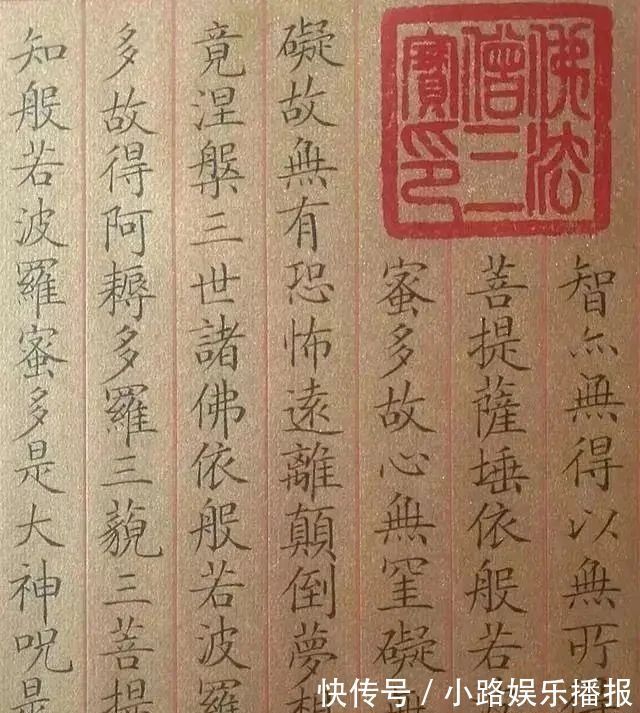 佛法
僧三
寶印
智亦無得以無所
菩提薩埵依般若
蜜多故心無罣礙
礙故無有恐怖遠離顛倒夢想
竟涅槃三世諸佛依般若波羅
多故得阿耨多羅三藐三菩提
知般若波羅蜜多是大神呪是
快传号 / 小路娱乐播报